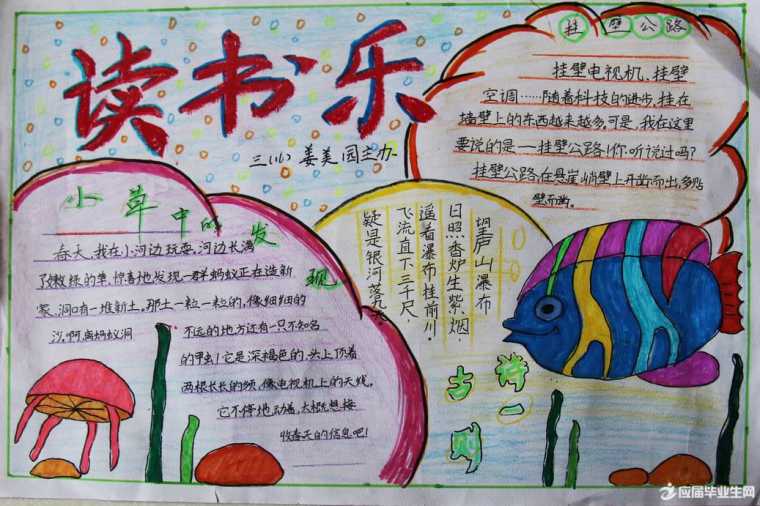 读书乐
三(11) 姜美园主办
挂壁公路
挂壁电视机、挂壁
空调……随着科技的进步,挂在
墙壁上的东西越来越多。可是,我在这里
要说的是——挂壁公路!你听说过吗?
挂壁公路,在悬崖峭壁上开凿而出,多贴
壁而凿。
小草中的发现
春天,我在小河边玩耍,河边长满
了嫩绿的草,惊喜地发现一群蚂蚁正在造新
家,洞口有一堆新土,那土一粒一粒的,像细细的
沙,啊,与蚂蚁洞
不远的地方还有一只不知名
的甲虫!它是深褐色的,头上顶着
两根长长的须,像电视机上的天线。
它不停地动着,大概想接
收春天的信息吧!
望庐山瀑布
日照香炉生紫烟,
遥看瀑布挂前川。
飞流直下三千尺,
疑是银河落九天
古诗一则
应届毕业生网